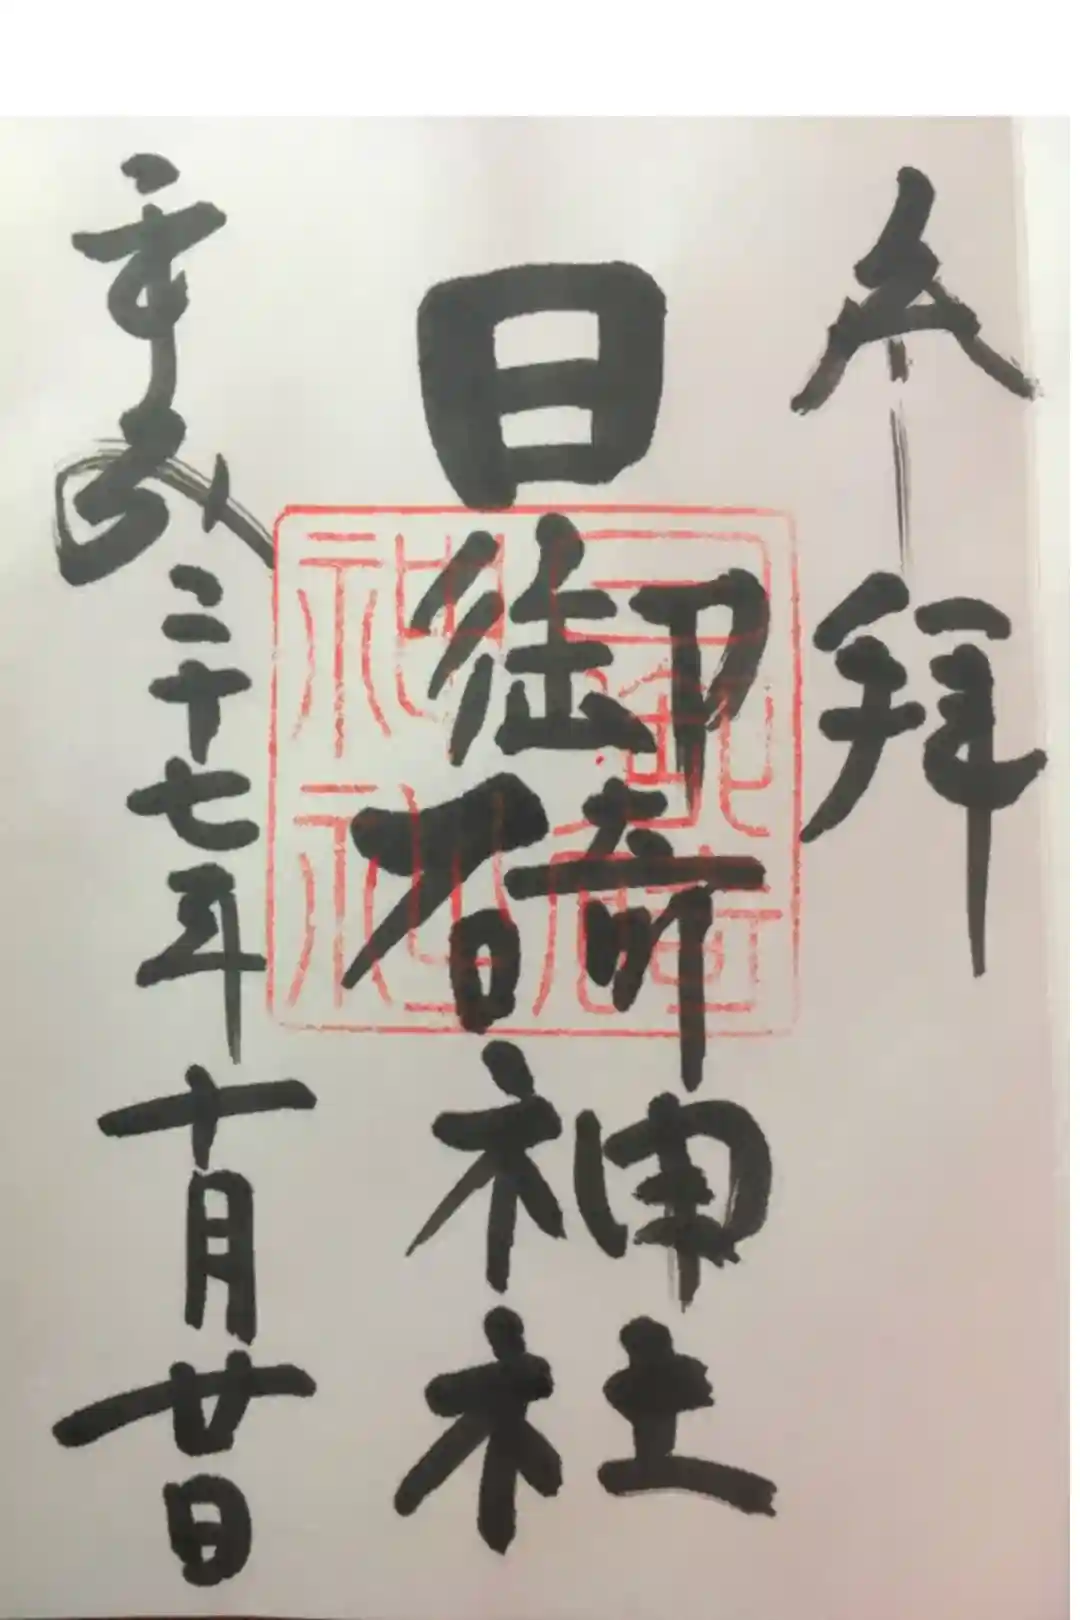 奉拝
日御碕神社
平成二十七年十月廿日
日御碕
神社